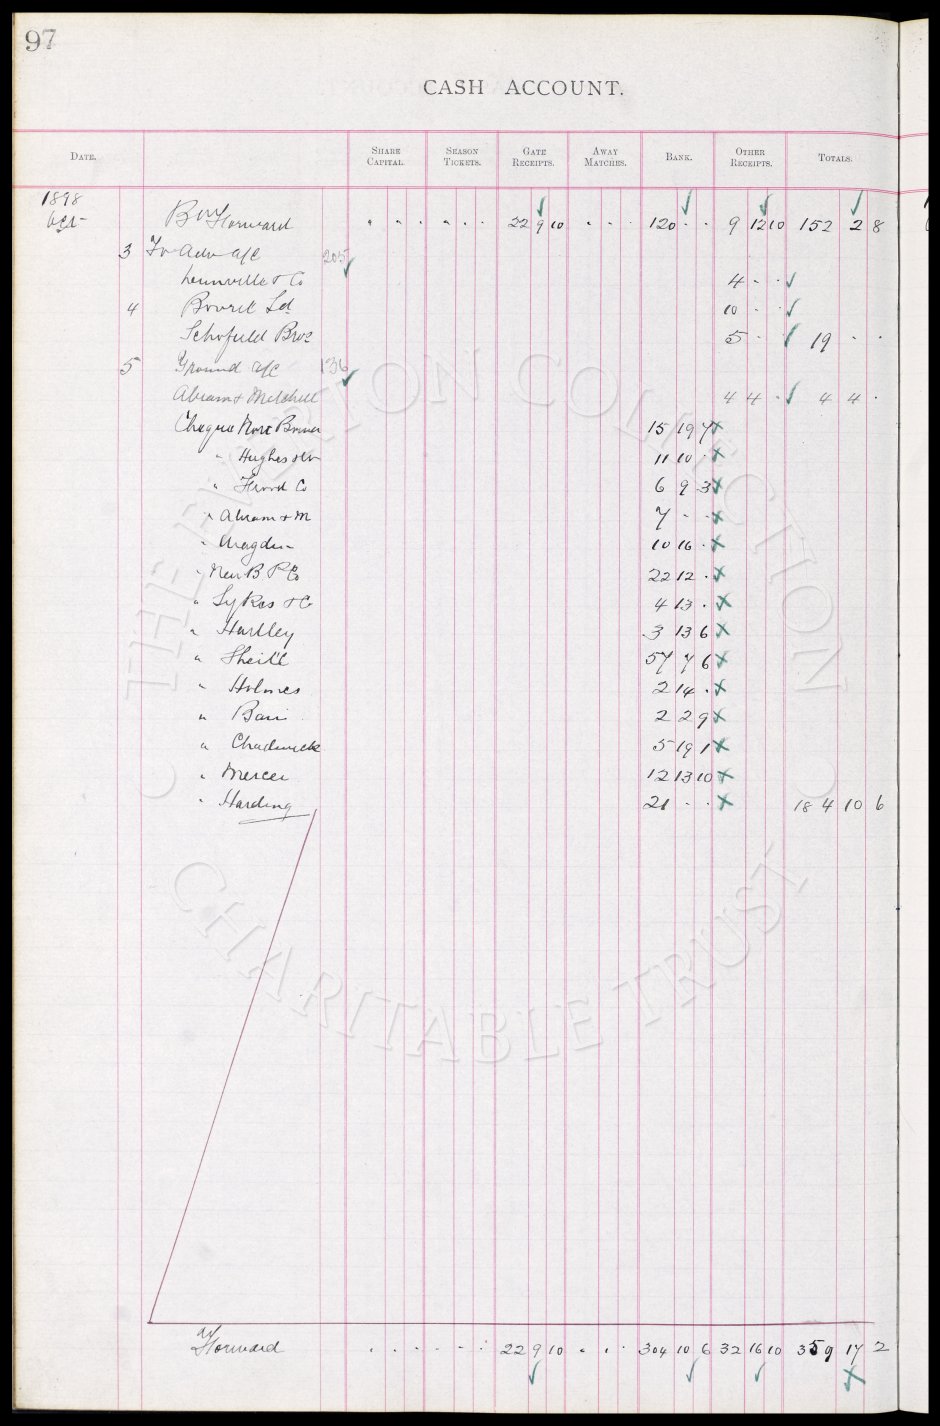 97
CASH ACCOUNT.
DATE. SHARE CAPITAL. SEASON TICKETS. GATE RECEIPTS. AWAY MATCHES. BANK. OTHER RECEIPTS. TOTALS.
1898
Oct Forward " " " " " " 22 9 10 " " 120 " " 9 12 10 152 2 8
3 To Adv a/c 205
& Co 4 " "
4 Bovril Ld 10 " "
Schofield Bros 5 " " 19 " "
5 Ground a/c 136
Abram & Mitchell 4 4 " 4 4 "
Cheque 15 19 7
" Hughes 11 10 "
" Co 6 9 3
" Abram & M 7 " "
" 10 16 "
" New B P Co 22 12 "
" Sykes & Co 4 13 "
" Hartley 3 13 6
" 57 7 6
" Holmes 2 14 "
" 2 2 9
" Chadwick 5 19 1
" Mercer 12 13 10
" Harding 21 " " 184 10 6
Forward " " " " " " 22 9 10 " " " 304 10 6 32 16 10 359 17 2
THE EVERTON COLLECTION
CHARITABLE TRUST